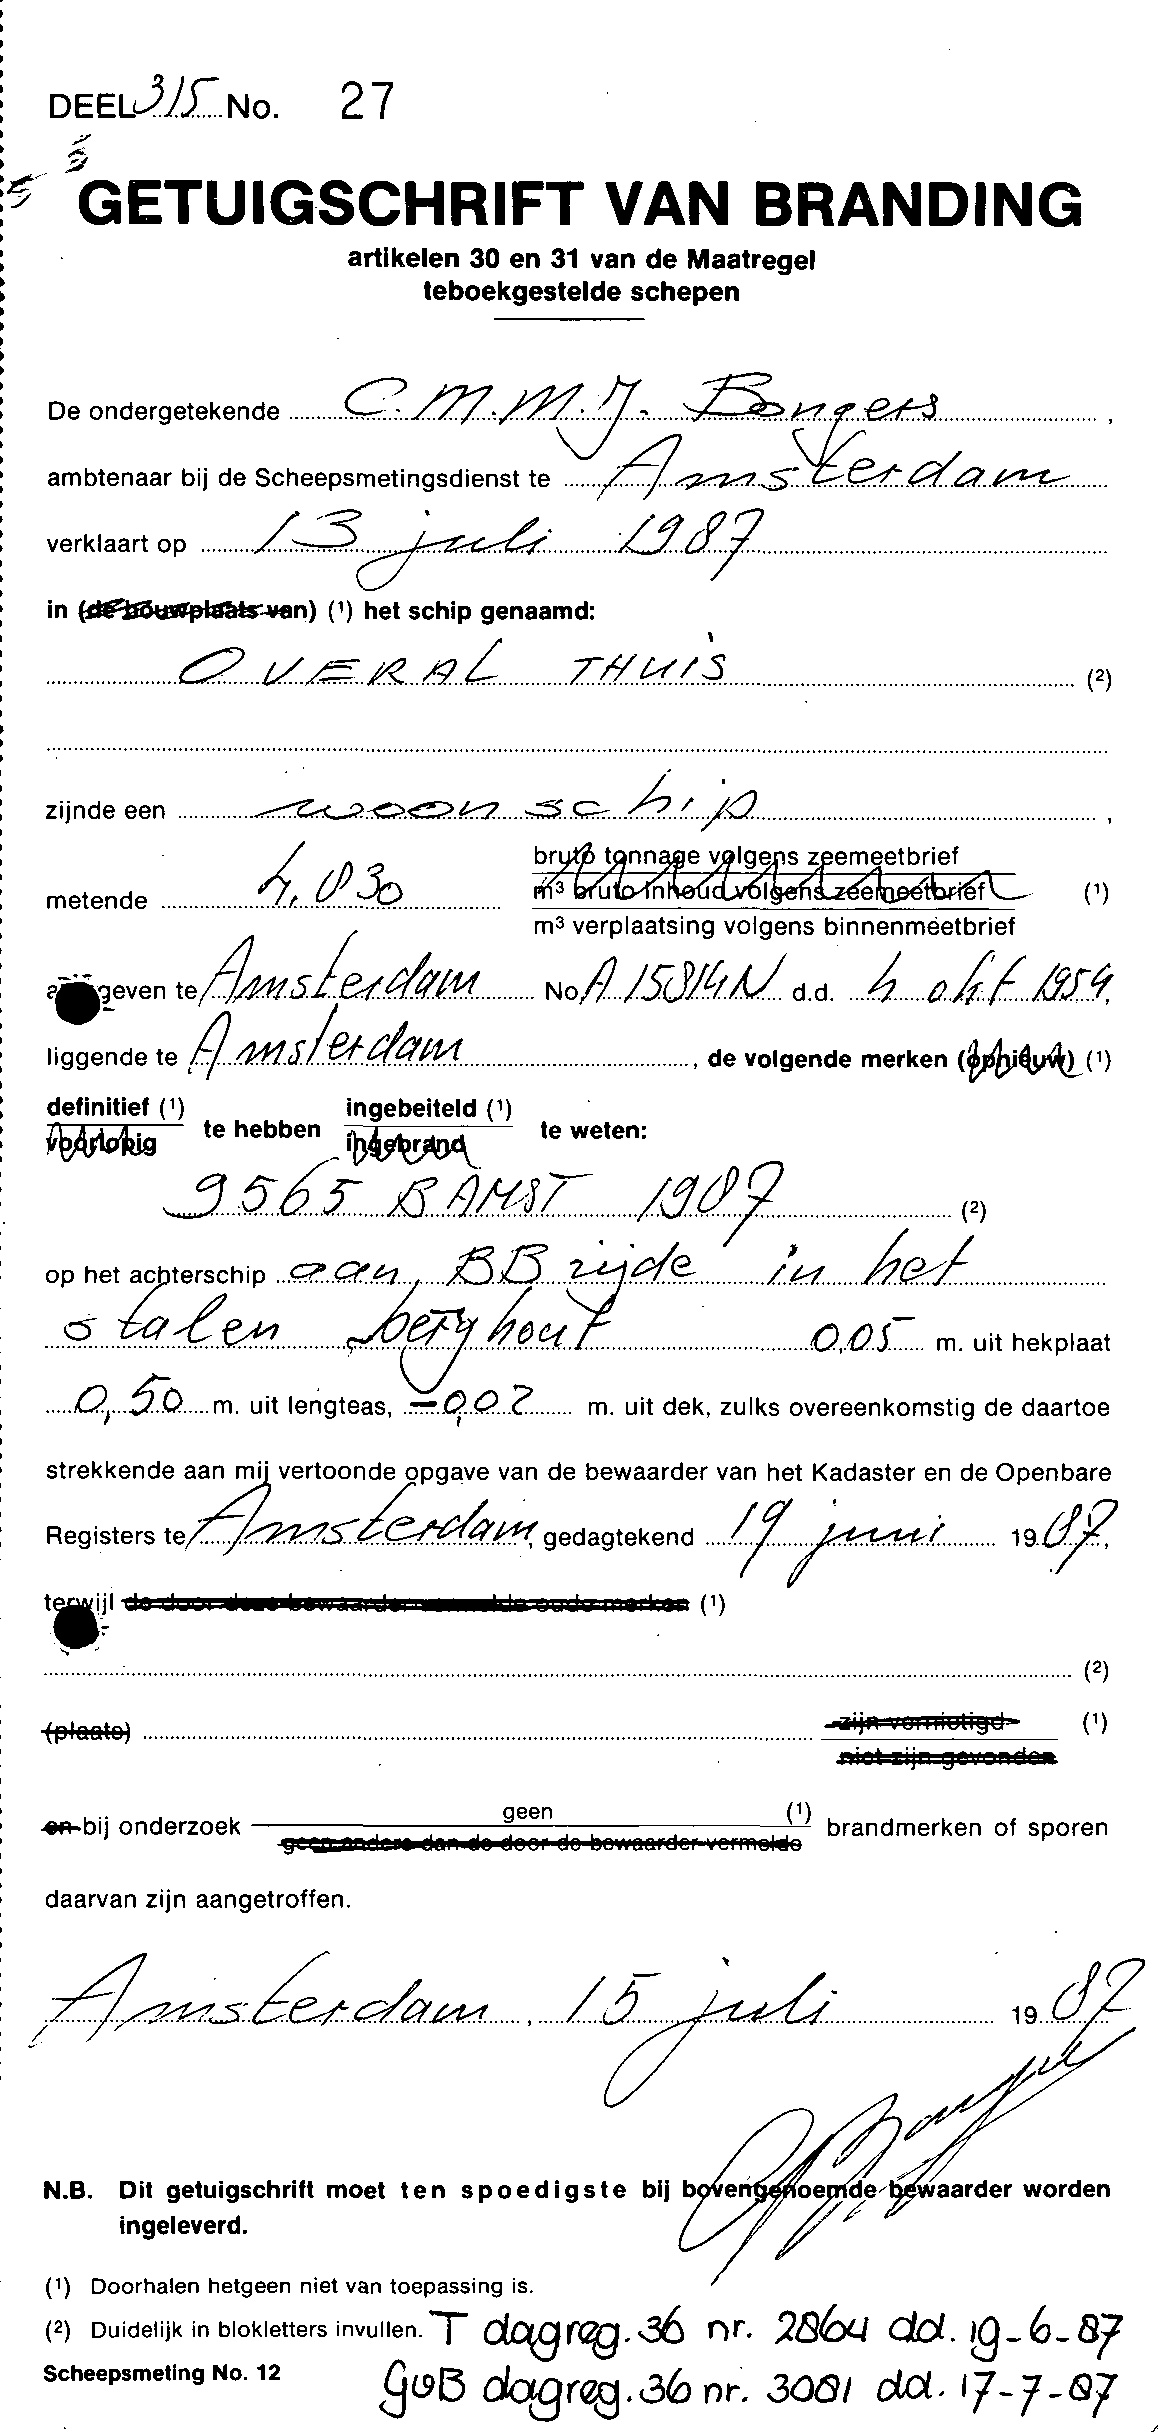 DEEL 315 No. 27
GETUIGSCHRIFT VAN BRANDING
artikelen 30 en 31 van de Maatregel
teboekgestelde schepen
De ondergetekende C.M.M.J. Bongers,
ambtenaar bij de Scheepsmetingsdienst te Amsterdam
verklaart op 13 juli 1987
in (de bouwplaats van) (1) het schip genaamd:
OVERAL THUIS (2)
zijnde een woonschip,
bruto tonnage volgens zeemeetbrief
metende 4,830 m³ bruto inhoud volgens zeemeetbrief (1)
m³ verplaatsing volgens binnenmeetbrief
geven te Amsterdam No A15814N d.d. 4 okt 1954,
liggende te Amsterdam, de volgende merken (opnieuw) (1)
definitief (1) ingebeiteld (1)
te hebben te weten:
voorlopig ingebrand
9565 B AMST 1987 (2)
op het achterschip aan BB zijde in het
stalen berghout 0,05 m. uit hekplaat
0,50 m. uit lengteas, -0,02 m. uit dek, zulks overeenkomstig de daartoe
strekkende aan mij vertoonde opgave van de bewaarder van het Kadaster en de Openbare
Registers te Amsterdam, gedagtekend 19 juni 1987,
terwijl de door deze bewaarder vermelde oude merken (1)
(2)
(plaats) zijn vernietigd (1)
niet zijn gevonden
geen (1)
en bij onderzoek brandmerken of sporen
geen andere dan de door de bewaarder vermelde
daarvan zijn aangetroffen.
Amsterdam, 15 juli 1987
N.B. Dit getuigschrift moet ten spoedigste bij bovengenoemde bewaarder worden
ingeleverd.
(1) Doorhalen hetgeen niet van toepassing is.
(2) Duidelijk in blokletters invullen. T dagreg. 36 nr. 2864 dd. 19-6-87
Scheepsmeting No. 12 GVB dagreg. 36 nr. 3081 dd. 17-7-87